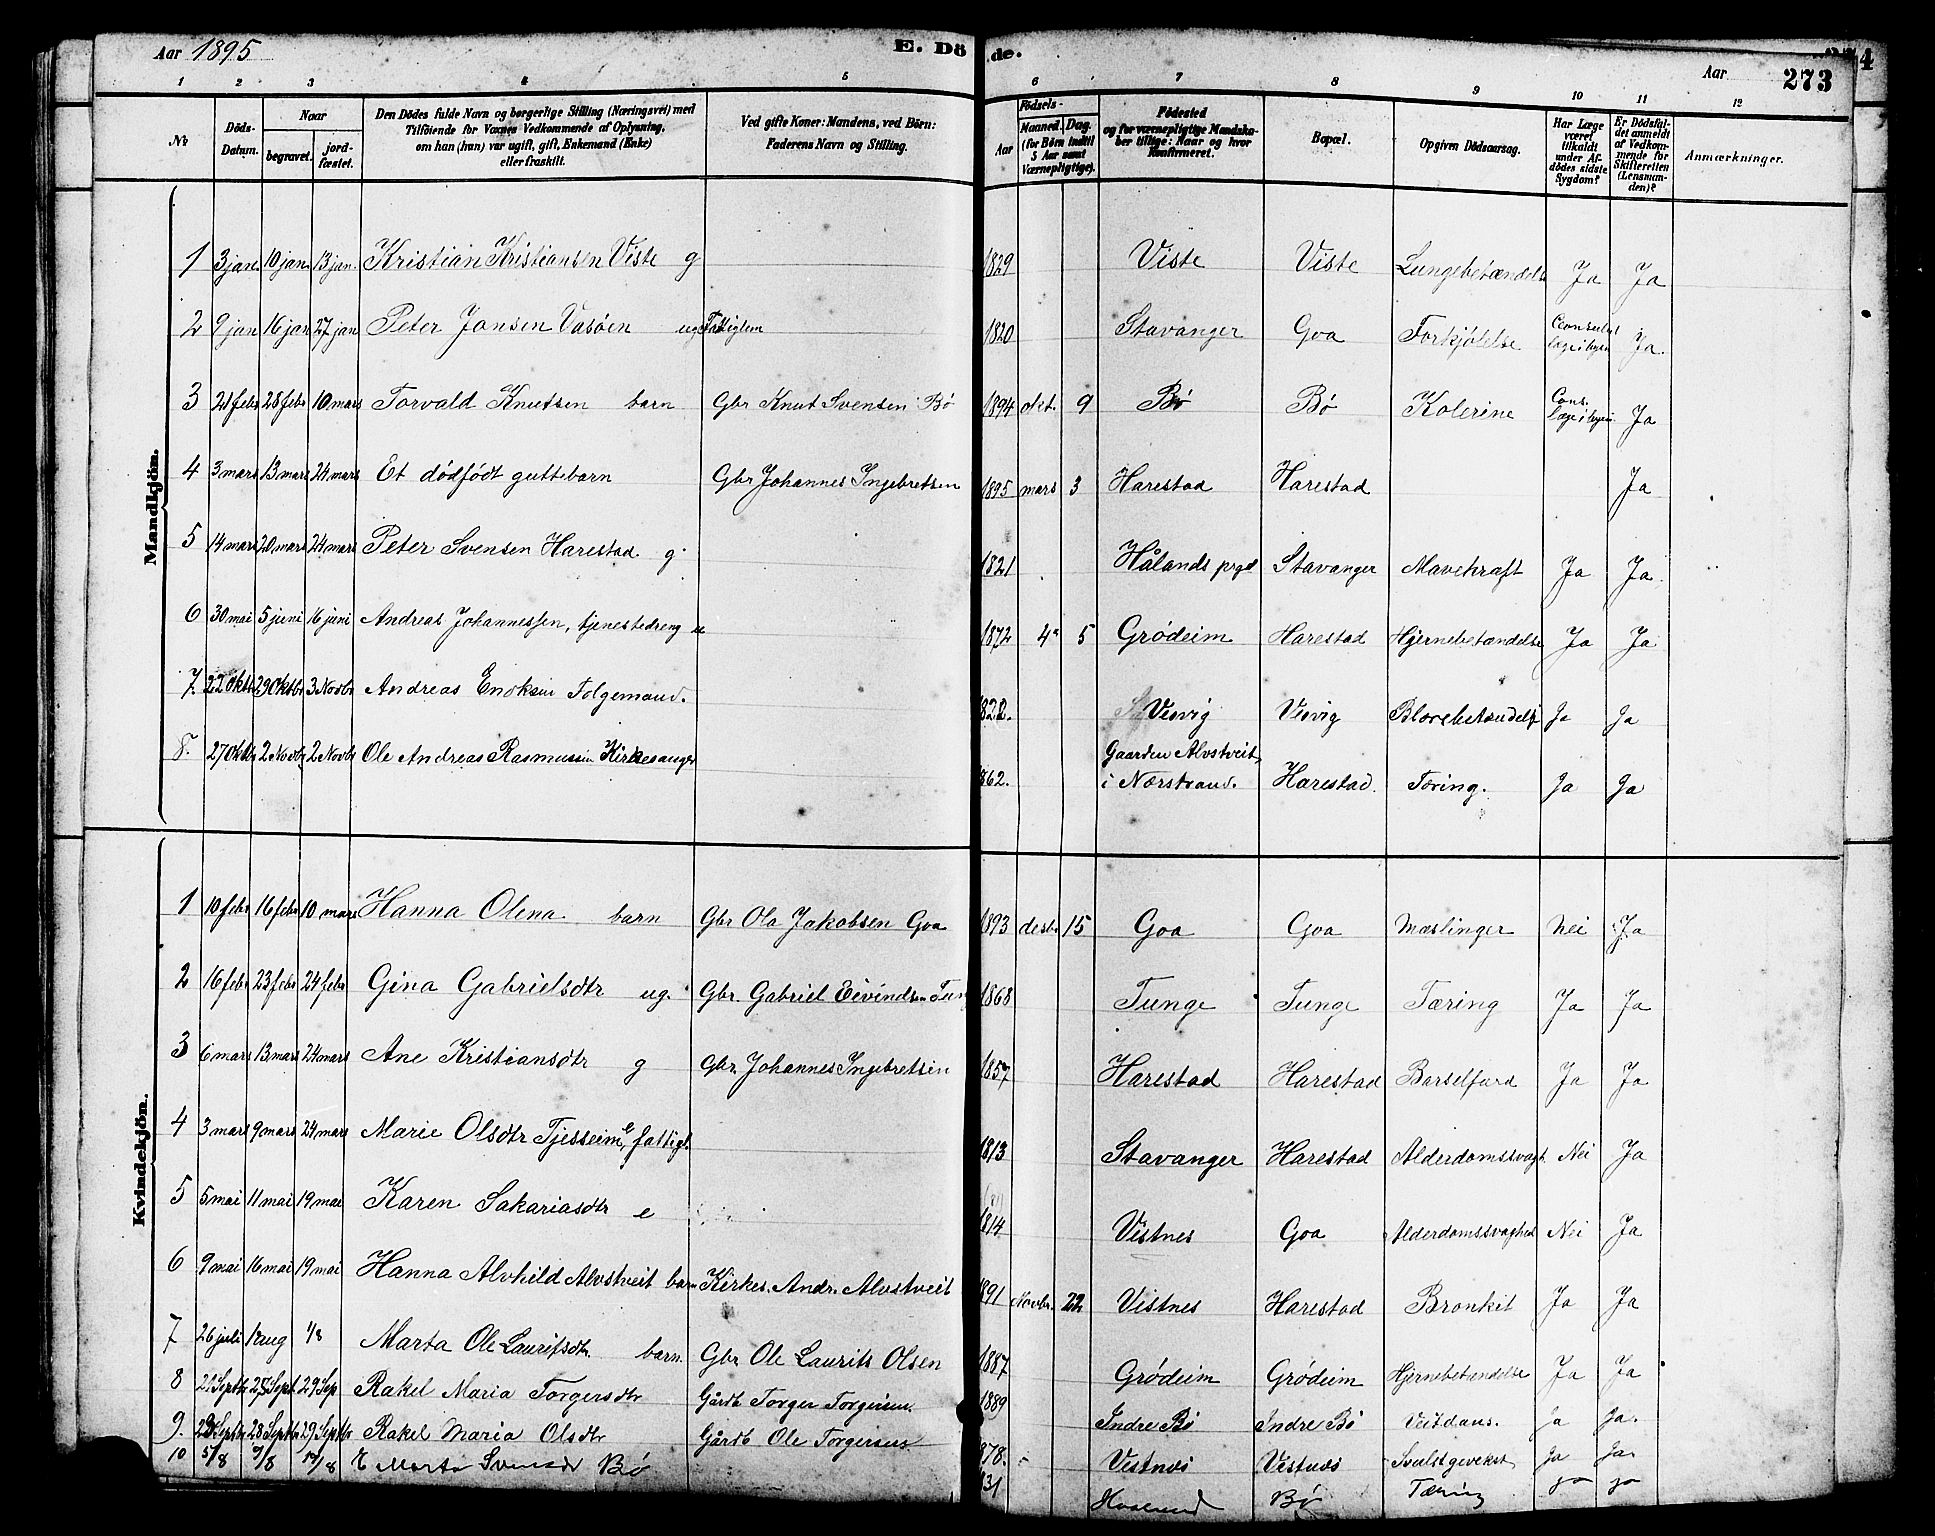 Aar 1895
E. Dö
de.
Aar 273
1 2 3 4 5 6 7 8 9 10 11 12
No
Döds-Datum.
Naar
begravet.
jord-fæstet.
Den Dödes fulde Navn og borgerlige Stilling (Næringsvei) med
Tilföiende for Voxnes Vedkommende af Oplysning,
om han (hun) var ugift, gift, Enkemand (Enke)
eller fraskilt.
Ved gifte Koner: Mandens, ved Börn:
Faderens Navn og Stilling.
Födsels-
Aar
Maaned. Dag.
(for Börn indtil 5 Aar samt Værnepligtige).
Födested
og for værnepligtige Mandskaber tillige: Naar og hvor Konfirmeret.
Bopæl.
Opgiven Dödsaarsag.
Har Læge været tilkaldt under Afdödes sidste Sygdom?
Er Dödsfaldet anmeldt af Vedkommende for Skifteretten (Lensmanden)?
Anmærkninger.
Mandkjön.
1 3 jan. 10 jan. 13 jan. Kristian Kristiansen Viste g 1829 Viste Viste Lungebetændelse Ja Ja
2 9 jan 16 jan 27 jan Peter Jonsen Vasöen ug Fattiglem 1820 Stavanger Goa Forkjölelse Ja.
3 21 febr 28 febr 10 mars Torvald Knutsen barn Gbr Knut Svensen Bö 1894 okt. 9 Bö Bö Kolerine Ja
4 3 mars 13 mars 24 mars Et dödfödt guttebarn Gbr Johannes Ingebretsen 1895 mars 3 Harestad Harestad Ja
5 14 mars 20 mars 24 mars Peter Svensen Harestad g 1821 Hålands prgd Stavanger Mavekræft Ja Ja.
6 30 mai 5 juni 16 juni Andreas Johannessen, tjenestedreng u 1872 4 5 Grödeim Harestad Hjernebetændelse Ja Ja
7. 22 Oktbr 29 Oktbr 3 Novbr Andreas Enoksen Folgemand. 822. Visvig Visvig Blærebetændelse Ja Ja
8. 27 Oktbr 2 Novbr 2 Novbr Ole Andreas Rasmussen Kirkesanger 862. Gaarden Alvstveit
i Nærstrand. Harestad. Tæring. Ja Ja
Kvindekjön.
1 10 febr 16 febr 10 mars Hanna Olena barn Gbr Ola Jakobsen Goa 1893 desbr 15 Goa Goa Mæslinger Nei Ja
2 16 febr 23 febr 24 febr Gina Gabrielsdtr ug. Gbr Gabriel Eivindsen Tung 1868 Tunge Tunge Tæring Ja Ja
3 6 mars 13 mars 24 mars Ane Kristiansdtr g Gbr. Johannes Ingebretsen 1857 Harestad Harestad Barselfærd Ja Ja
4 3 mars 9 mars 24 mars Marie Olsdtr Tjesseim e, fattigl. 1813 Stavanger Harestad Alderdomssvagh. Nei Ja
5 5 mai 11 mai 19 mai Karen Sakariasdtr e 1814 Vistnes Goa Alderdomssvaghed Nei Ja
6 9 mai 16 mai 19 mai Hanna Alvhild Alvstveit barn Kirkes. Andr. Alvstveit 891 Novbr. 22 Vistnes Harestad Bronkit Ja Ja
7 26 juli 1 aug 1/8 Marta Ole Lauritsdtr. barn. Gbr. Ole Laurits Olsen 1887 Grödeim Grödeim Hjernebetændelse Ja Ja
8 Septbr Sept 29 Sep Rakel Maria Torgersdtr Gårdb Torger Torgersen. 1889 Indre Bö Indre Bö Veitdans. Ja Ja.
9. Septbr 28 Septbr 29 Septbr Rakel Maria Olsdtr Gårdb Ole Torgersen 878. Vistnes Vistnes Svulstgevekst Ja Ja
10 5/8 /8 /8 E Marta Bö 31 Bö Tæring Ja Ja